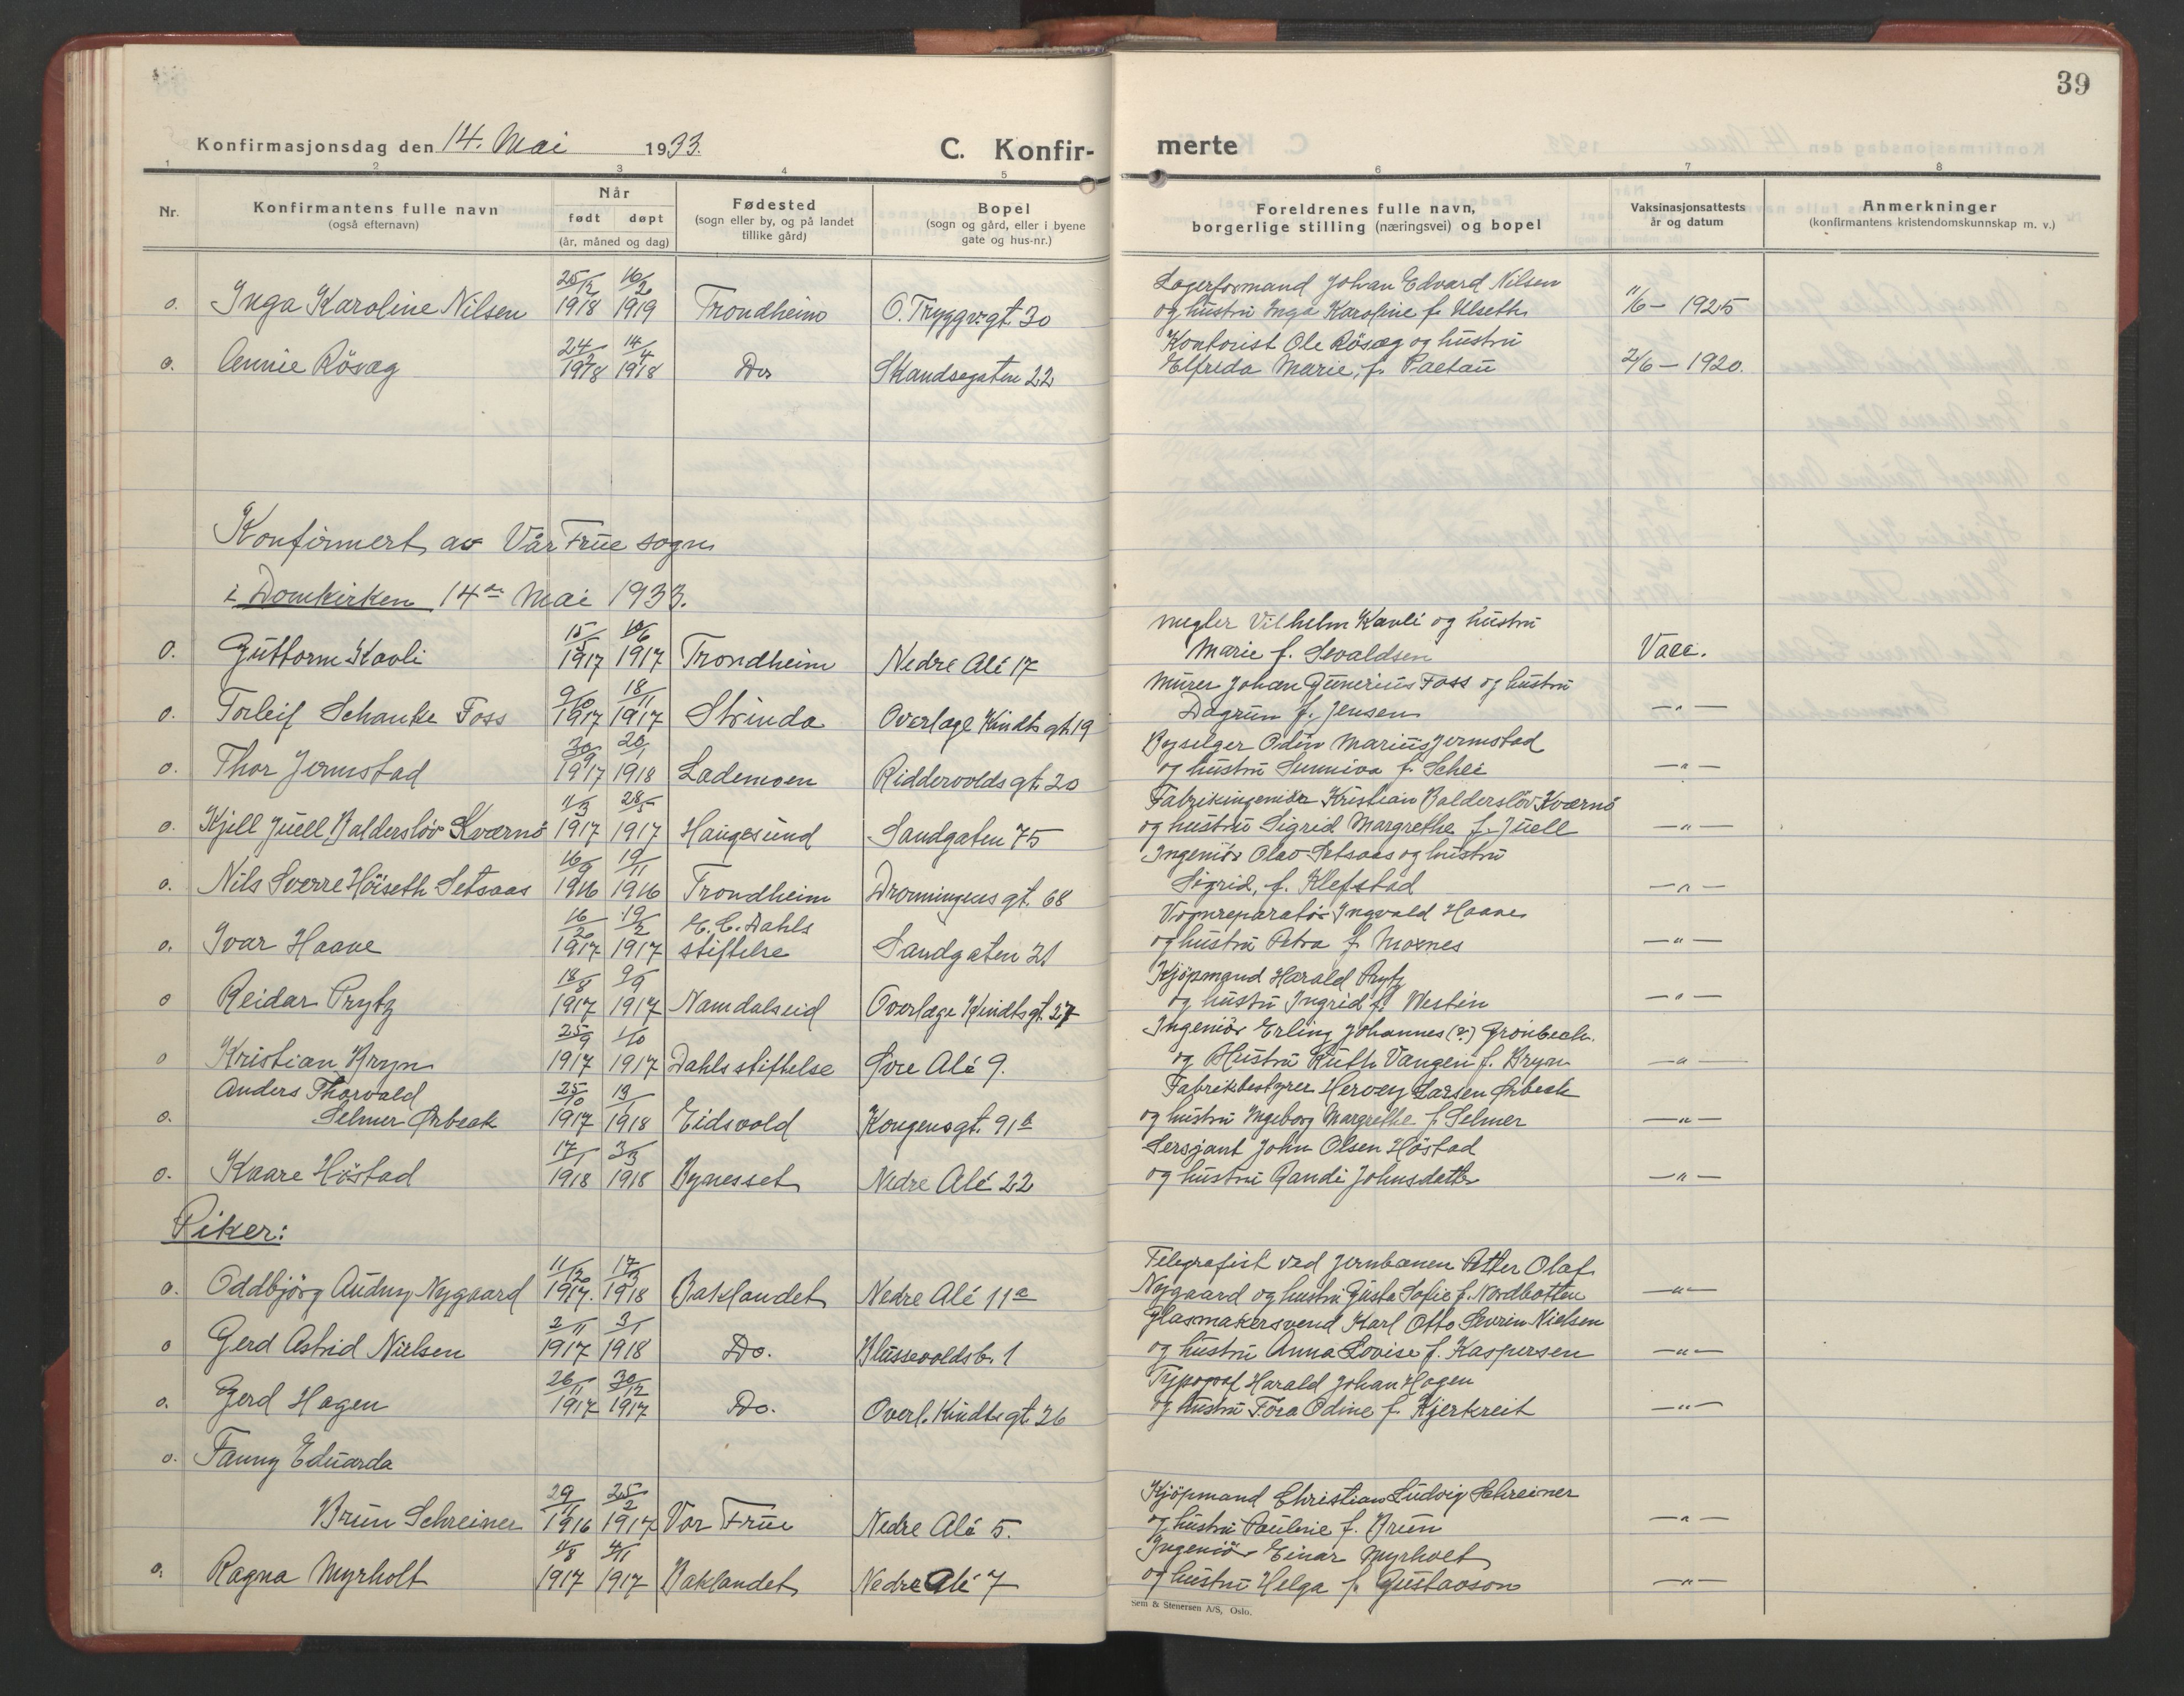 39
Konfirmasjonsdag den 14. Mai 1933.
C. Konfir-
merte
1 2 3 4 5 6 7 8
Nr.
Konfirmantens fulle navn
(også efternavn)
Når
født døpt
(år, måned og dag)
Fødested
(sogn eller by, og på landet
tillike gård)
Bopel
(sogn og gård, eller i byene
gate og hus-nr.)
Foreldrenes fulle navn,
borgerlige stilling (næringsvei) og bopel
Vaksinasjonsattests
år og datum
Anmerkninger
(konfirmantens kristendomskunnskap m. v.)
25/12 16/2 Lagerformand Johan Edvard Nilsen
o. Inga Karoline Nilsen 1918 1919 Trondheim O. Tryggv.gt 30 og hustru Inga Karoline f. Ulseth 11/6 – 1925
24/2 14/4 Kontorist Ole Røsæg og hustru
o. Annie Røsæg 1918 1918 Do Skandsegaten 22 Elfreda Marie, f. Paetau 2/6 – 1920.
Konfirmert av Vår Frue sogn
i Domkirken 14de Mai 1933.
15/5 10/6 megler Vilhelm Kavli og hustru
O. Guttorm Kavli 1917 1917 Trondheim Nedre Alé 17 Marie f. Sevaldsen Vacc.
9/10 18/11 Murer Johan Gunerius Foss og hustru
o. Torleif Schanke Foss 1917 1917 Strinda Overlæge Kindts gt 19 Dagrun f. Jensen — " —
30/9 20/1 Byselger Odin Marius Jermstad
o. Thor Jermstad 1917 1918 Lademoen Riddervolds gt. 20 og hustru Sunniva f. Schei — " —
11/3 28/5 Fabrikingeniør Kristian Balderslöv Kværnø
o. Kjell Juell Balderslöv Kværnø 1917 1917 Haugesund Sandgaten 75 og hustru Sigrid Margrethe f. Juell — " —
16/9 19/11 Ingeniör Olav Setsaas og hustru
o. Nils Sverre Höiseth Setsaas 1916 1916 Trondheim Dronningens gt. 68 Sigrid, f. Klefstad — " —
E. C. Dahls Vognreparatör Ingvald Haave
o. Ivar Haave 1917 1917 stiftelse Sandgaten 21 og hustru Petra f. Moxnes — " —
18/8 9/9 Kjöpmand Harald Prytz
o Reidar Prytz 1917 1917 Namdalseid Overlæge Kindts gt. 27 og hustru Ingrid f. Westin — " —
25/9 1/10 Ingeniör Erling Johannes (?) Grönbech
o Kristian Bryn 1917 1917 Dahls stiftelse Øvre Alé 9. og Hustru Ruth Vangen f. Bryn — " —
Anders Thorvald 25/10 13/1 Fabrikbestyrer Hervey Larsen Ørbeck
o. Selmer Ørbeck 1917 1918 Eidsvold Kongensgt. 91b og hustru Ingeborg Margrethe f. Selmer — " —
17/1 3/3 Sersjant John Olsen Höstad
o. Kaare Höstad 1918 1918 Bynesset Nedre Alé 22 og hustru Randi Johnsdatter — " —
Piker:
11/12 17/3 Telegrafist ved Jernbanen Petter Olaf
o. Oddbjörg Audny Nygaard 1917. 1918 Baklandet Nedre Alé 11a Nygaard og hustru Gusta Sofie f. Nordbotten — " —
2/11 3/1 Glasmakersvend Karl Otto Severin Nielsen
o Gerd Astrid Nielsen 1917 1918 Do. Blussevoldsb. 1 og hustru Anna Lovise f. Kaspersen — " —
26/11 30/12 Typograf Harald Johan Hagen
o. Gerd Hagen 1917 1917 Do. Overl. Kindts gt 26 og hustru Tora Odine f. Kjerkreit — " —
o. Fanny Eduarda
29/11 25/2 Kjöpmand Christian Ludvig Schreiner
Brun Schreiner 1916 1917 Vor Frue Nedre Alé 5. og hustru Pauline f. Brun — " —
11/8 4/11 Ingeniör Einar Myrholt
o. Ragna Myrholt 1917 1917 Baklandet Nedre Alé 7 og hustru Helga f. Gustavson — " —
Sem & Stenersen A/S, Oslo.